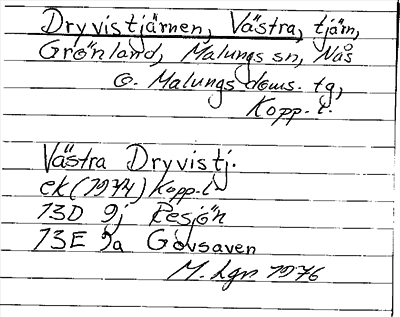 Dryvistjärnen, Västra, tjärn,
Grönland, Malungs sn, Nås
o. Malungs doms. tg,
Kopp. l.
Västra Dryvistj.
ek (1974) Kopp. l.
13D 9j Resjön
13E 9a Govsaven
M. Lgn 1976